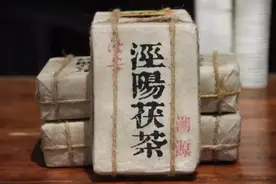 涇陽茯茶
溯源